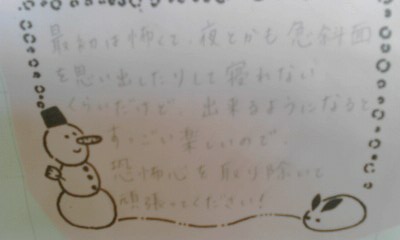 最初は怖くて、夜とかも急斜面
を思い出したりして寝れない
くらいだけど、出来るようになると
すっごい楽しいので、
恐怖心を取り除いて
頑張ってください！